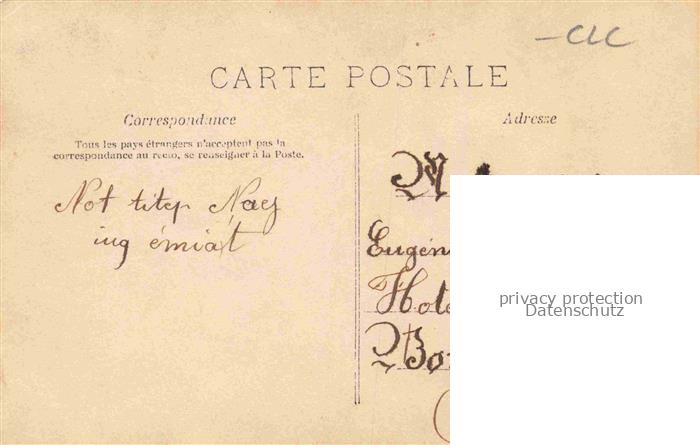 CLC
CARTE POSTALE
Correspondance
Tous les pays étrangers n'acceptent pas la
correspondance au recto, se renseigner à la Poste.
Not titep Naes
ing émiat
Adresse
M
Eugén
Hote
Bor
privacy protection
Datenschutz